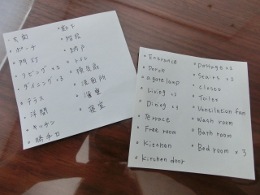 ・玄関
・ポーチ
・リビング ×3
・ダイニング ×3
・テラス
・洋間
・キッチン
・勝手口
・階段
・トイレ
・換気扇
・洗面所
・寝室
・Entrance
・Porch
・Living ×3
・Dining ×3
・Terrace
・Free room
・Kitchen
・Kitchen door
・passage ×2
・Stairs ×2
・Closet
・Toilet
・Ventilation fan
・Wash room
・Bath room
・Bed room × 3